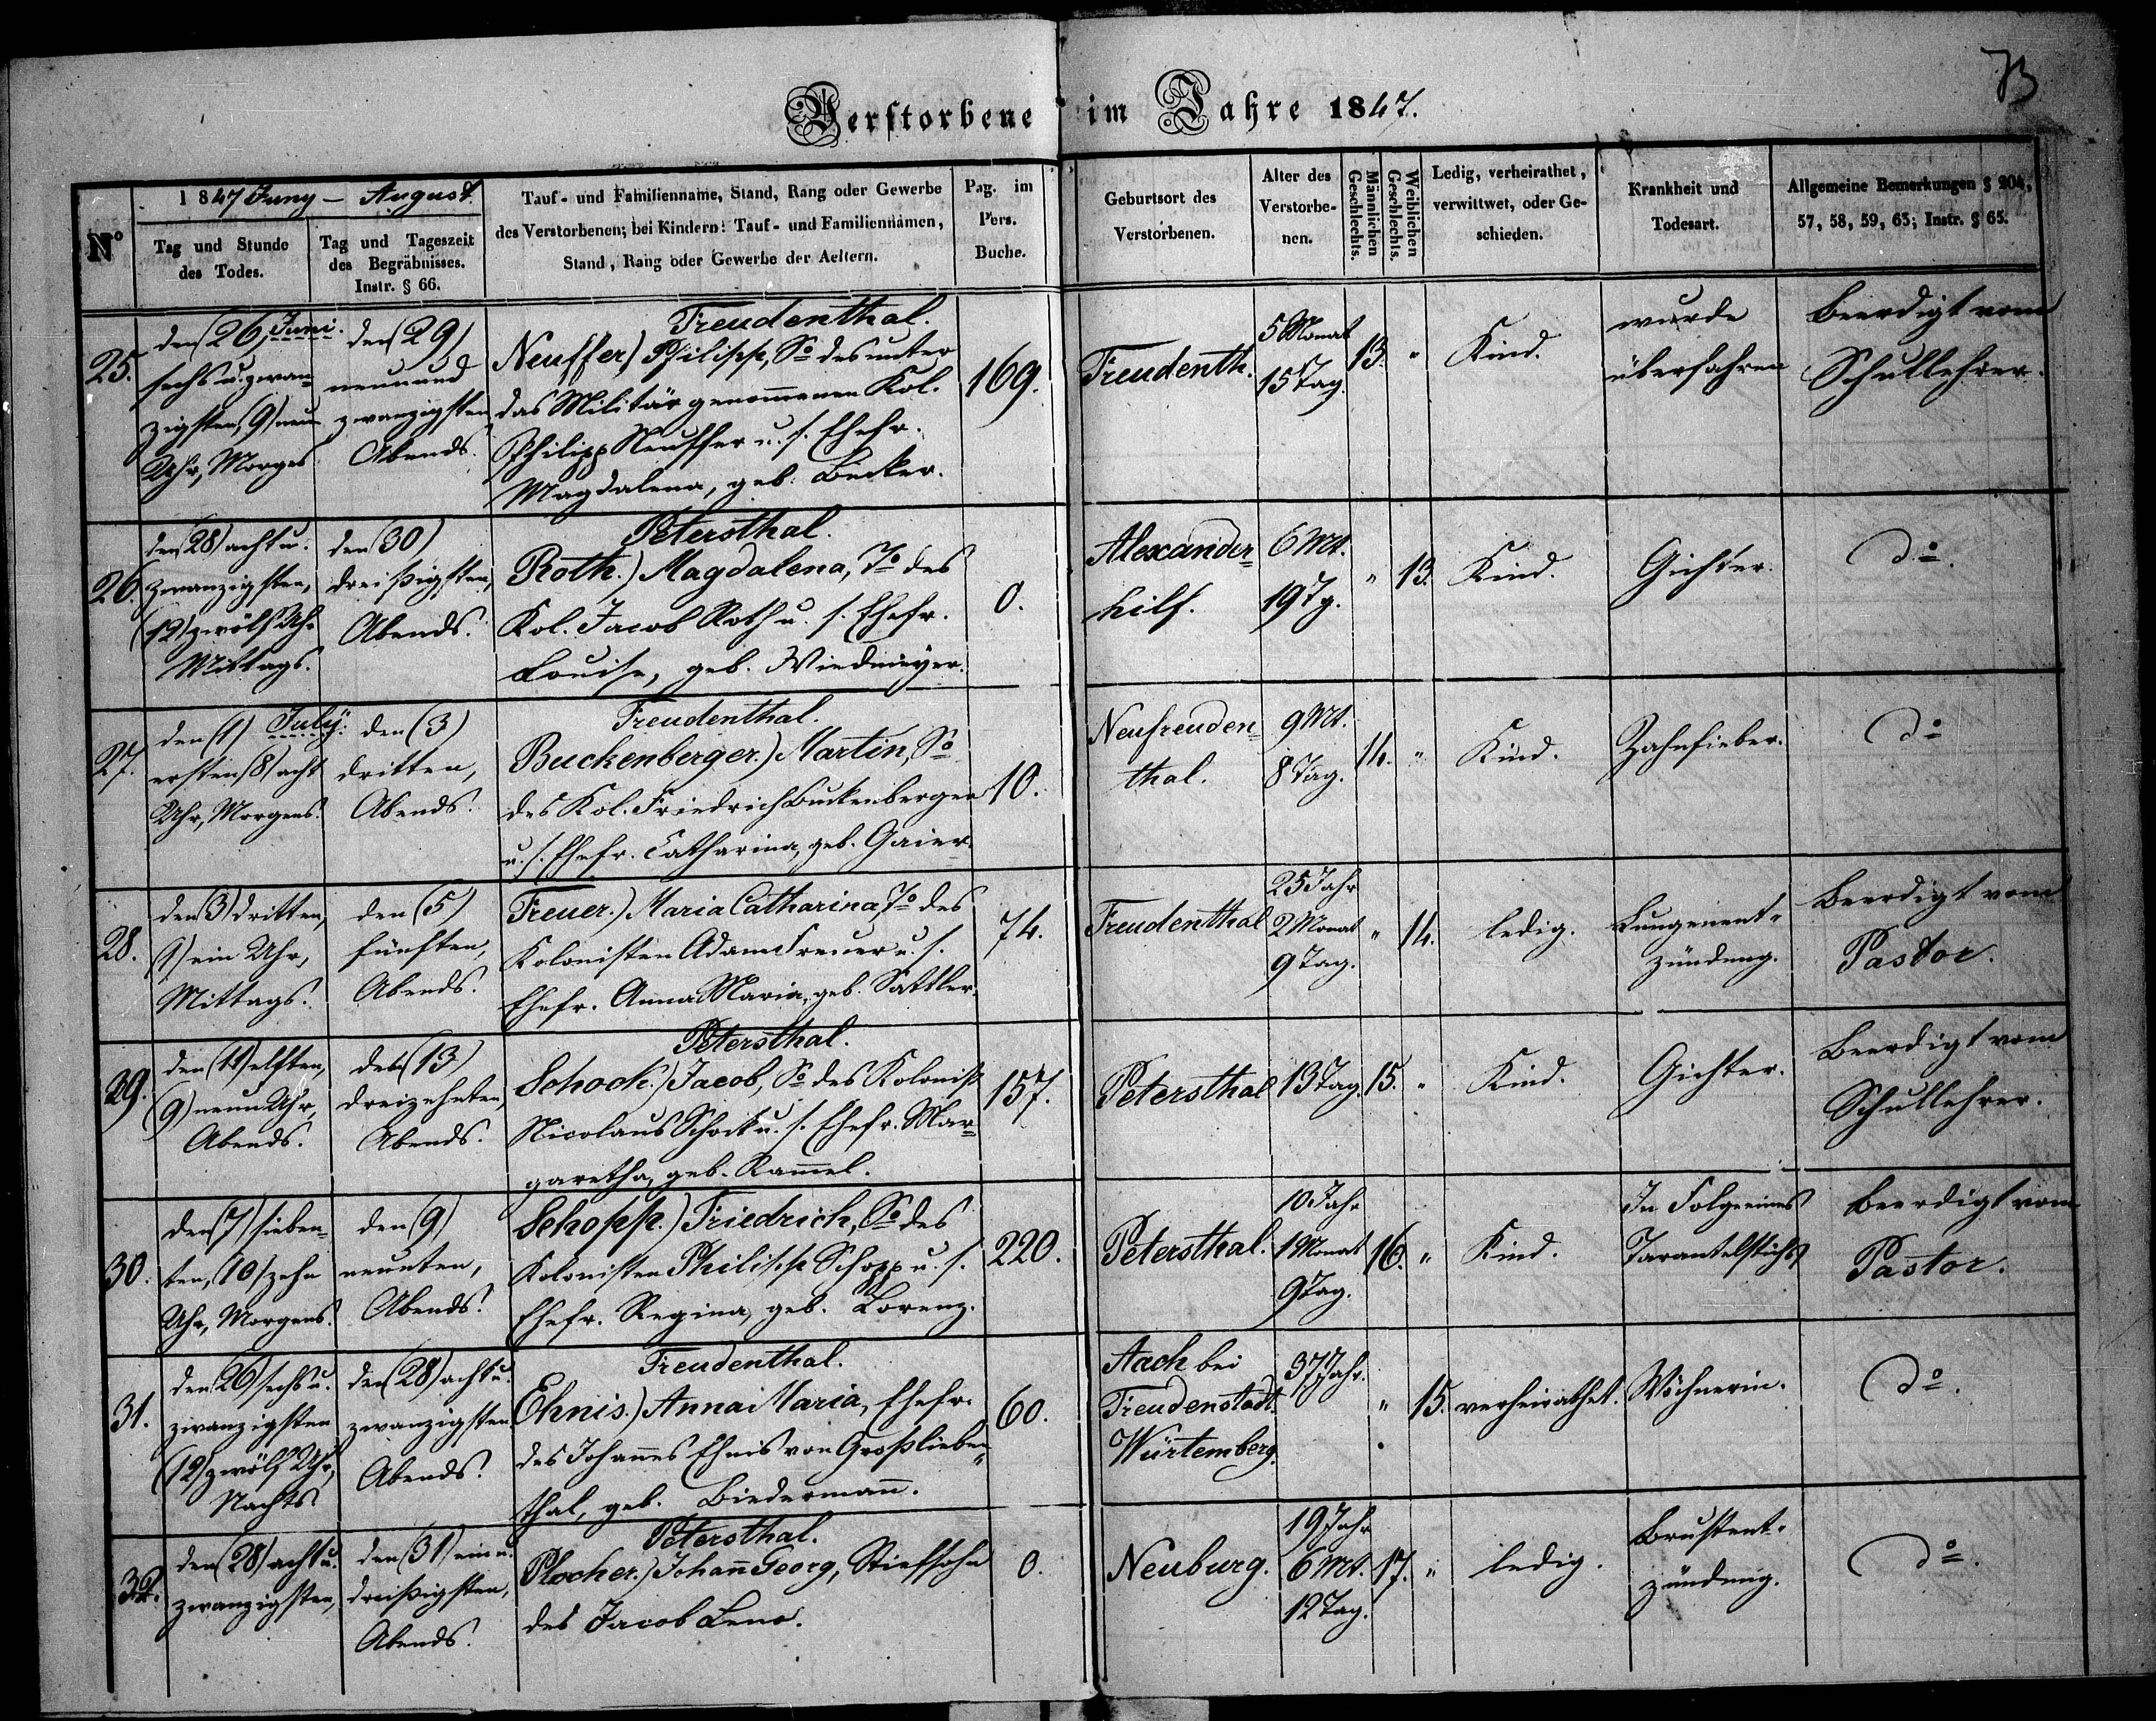 73
Verstorbene im Jahre 1847.
Nº
1847 Juny – August.
Tag und Stunde
des Todes.
Tag und Tageszeit
des Begräbnisses.
Instr. § 66.
Tauf- und Familienname, Stand, Rang oder Gewerbe
des Verstorbenen; bei Kindern: Tauf- und Familiennamen,
Stand, Rang oder Gewerbe der Aeltern.
Pag. im
Pers.
Buche.
Geburtsort des
Verstorbenen.
Alter des
Verstorbe-
nen.
Männlichen
Geschlechts.
Weiblichen
Geschlechts.
Ledig, verheirathet,
verwittwet, oder Ge-
schieden.
Krankheit und
Todesart.
Allgemeine Bemerkungen § 204,
57, 58, 59, 63; Instr. § 65.
25.
den (26) Juni.
sechs u. zwan-
zigsten, 9) neun
Uhr, Morges
den (29)
neunund
zwanzigsten
Abends.
Freudenthal.
Neuffer) Philipp, So des unter
das Militär genom̄enen Kol.
Philipp Neuffer u. s. Ehefr.
Magdalena, geb. Becker.
169.
Freudenth.
5 Monat
15 Tag.
13.
"
Kind.
wurde
überfahren
Beerdigt vom
Schullehrer.
26.
den (28) acht u.
zwanzigsten,
(12) zwölf Uhr
Mittags.
den (30)
dreißigsten,
Abends.
Petersthal.
Roth.) Magdalena, To des
Kol. Jacob Roth u. s. Ehefr.
Louise, geb. Wiedmeyer.
0.
Alexander-
hilf.
6 Mt.
19 Tg.
"
13.
Kind.
Gichter.
do.
27.
den (1) July:
ersten (8) acht
Uhr, Morgens.
den (3)
dritten,
Abends.
Freudenthal.
Buckenberger.) Martin, So
des Kol. Friedrich Buckenberger
u. s. Ehefr. Catharina, geb. Gaier.
10.
Neufreuden-
thal.
9 Mt.
8 Tag.
14.
"
Kind.
Zahnfieber.
do
28.
den (3) dritten,
(1) ein Uhr,
Mittags.
den (5)
fünften,
Abends.
Freuer.) Maria Catharina, To des
Kolonisten Adam Freuer u. s.
Ehefr. Anna Maria, geb. Sattler.
74.
Freudenthal
25 Jahr
2 Monat
9 Tag.
"
14.
ledig.
Lungenent-
zündung.
Beerdigt vom
Pastor.
29.
den (11) elften,
(9) neun Uhr,
Abends.
den (13)
dreizehnten,
Abends.
Petersthal.
Schock.) Jacob, So des Kolonist
Nicolaus Schock u. s. Ehefr. Mar-
garetha, geb. Ram̄el.
157.
Petersthal
13 Tag.
15.
"
Kind.
Gichter.
Beerdigt vom
Schullehrer.
30.
den (7) sieben-
ten, (10) zehn
Uhr, Morgens.
den (9)
neunten,
Abends.
Schopp.) Friedrich, So des
Kolonisten Philipp Schopp u. s.
Ehefr. Regina, geb. Lorenz.
220.
Petersthal.
10 Jahr
1 Monat
9 Tag.
16.
"
Kind.
In Folge eines
Tarantelstichs
Beerdigt vom
Pastor.
31.
den (26) sechs u.
zwanzigsten
(12) zwölf Uhr,
Nachts
den (28) acht u.
zwanzigsten
Abends.
Freudenthal.
Ehnis.) Anna Maria, Ehefr.
des Johan̄es Ehnis von Großlieben-
thal, geb. Biederman̄.
60.
Aach bei
Freudenstadt.
Würtemberg.
37 Jahr.
"
15.
verheirathet.
Wöchnerin.
do.
32.
den (28) acht u.
zwanzigsten,
den (31) ein u.
dreißigsten,
Abends.
Petersthal.
Plocher.) Johan̄ Georg, Stiefsohn
des Jacob
0.
Neuburg.
19 Jahr
6 Mt.
12 Tag.
17.
"
ledig.
Brustent-
zündung.
do.